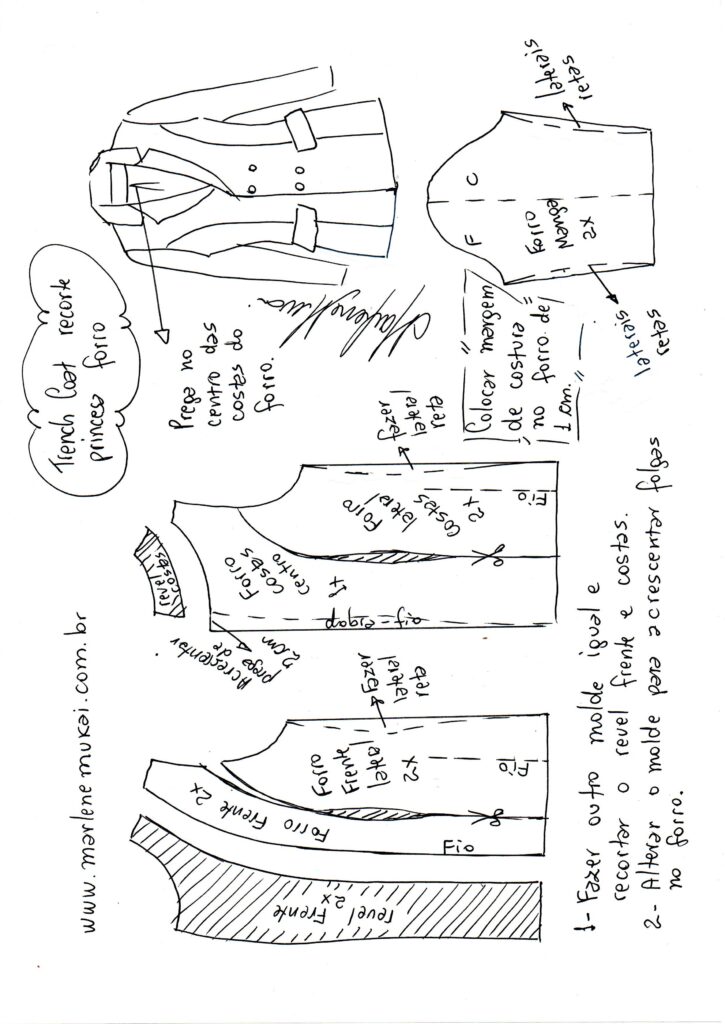 www.marlenemukai.com.br
Trench Coat recorte
princess forro
revel
costas
Acrescentar
prega de
2cm
Prega no
centro das
costas do
forro.
revel Frente
2x
Forro Frente 2x
Fio
Forro
Frente
lateral
2x
Fio
Fazer
lateral
reta
Forro
costas
centro
1x
Forro
costas
lateral
2x
Fio
fazer
lateral
reta
Marlene Mukai
"Colocar margem
de costura
no forro de
1 cm."
F
C
Forro
Manga
2x
laterais
retas
laterais
retas
1- Fazer outro molde igual e
recortar o revel frente e costas.
2- Alterar o molde para acrescentar folgas
no forro.